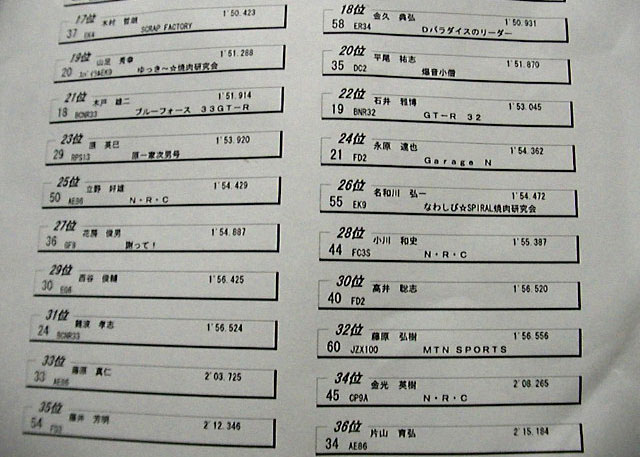 17位 木村 哲朗 1'50.423
37 EK4 SCRAP FACTORY
18位 金久 典弘 1'50.931
58 ER34 Dパラダイスのリーダー
19位 山足 秀幸 1'51.288
20 EK9 ゆっき～☆焼肉研究会
20位 平尾 祐志 1'51.870
35 DC2 爆音小僧
21位 木戸 雄二 1'51.914
18 BCNR33 ブルーフォース 33GT-R
22位 石井 雅博 1'53.045
19 BNR32 GT-R 32
23位 原 英巳 1'53.920
29 RPS13 原一家次男号
24位 永原 達也 1'54.362
21 FD2 Garage N
25位 立野 好雄 1'54.429
50 AE86 N・R・C
26位 名和川 弘一 1'54.472
55 EK9 なわしび☆SPIRAL焼肉研究会
27位 花房 俊男 1'54.887
36 GF8 謝って!
28位 小川 和史 1'55.387
44 FC3S N・R・C
29位 西谷 俊輔 1'56.425
30 EG6
30位 高井 聡志 1'56.520
40 FD2
31位 難波 孝志 1'56.524
24 BCNR33
32位 藤原 弘樹 1'56.556
60 JZX100 MTN SPORTS
33位 藤原 真仁 2'03.725
33 AE86
34位 金光 英樹 2'08.265
45 CP9A N・R・C
35位 藤井 芳明 2'12.346
54
36位 片山 育弘 2'15.184
34 AE86